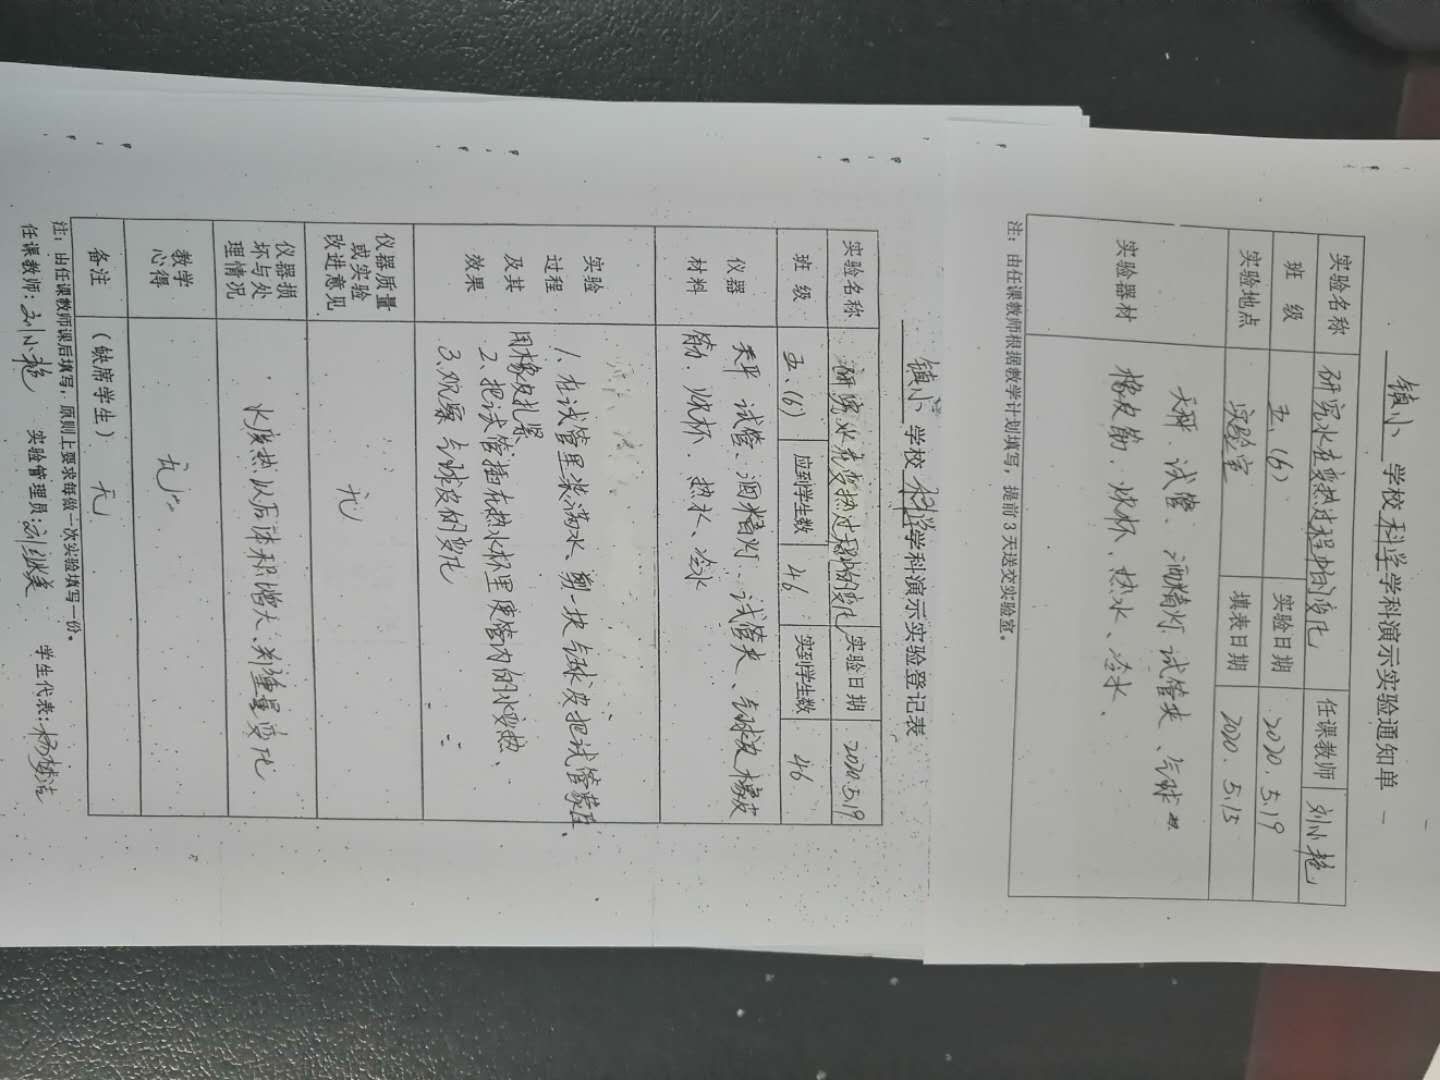 镇小 学校 科学 学科演示实验通知单
实验名称 研究水在变热过程中的变化 任课教师 刘小艳
班 级 五、(6) 实验日期 2020.5.19
实验地点 实验室 填表日期 2020.5.15
实验器材 天秤 试管、酒精灯 试管夹、气球皮
橡皮筋、烧杯、热水、冷水、
注：由任课教师根据教学计划填写，提前3天送交实验室。
镇小 学校 科学 学科演示实验登记表
实验名称 研究水在变热过程中的变化 实验日期 2020.5.19
班 级 五、(6) 应到学生数 46 实到学生数 46
仪器材料 天平 试管、酒精灯、试管夹、气球皮橡皮
筋、烧杯、热水、冷水
实验过程及其效果 1、在试管里装满水、剪一块气球皮把试管蒙住、
用橡皮扎紧
2、把试管插在热水杯里使管内的水变热、
3、观察气球皮的变化
仪器质量或实验改进意见 无
仪器损坏与处理情况 水变热以后体积增大、重量变化
教学心得 无
备注 (缺席学生) 无
注：由任课教师课后填写，原则上要求每做一次实验填写一份。
任课教师：刘小艳 实验管理员： 学生代表：